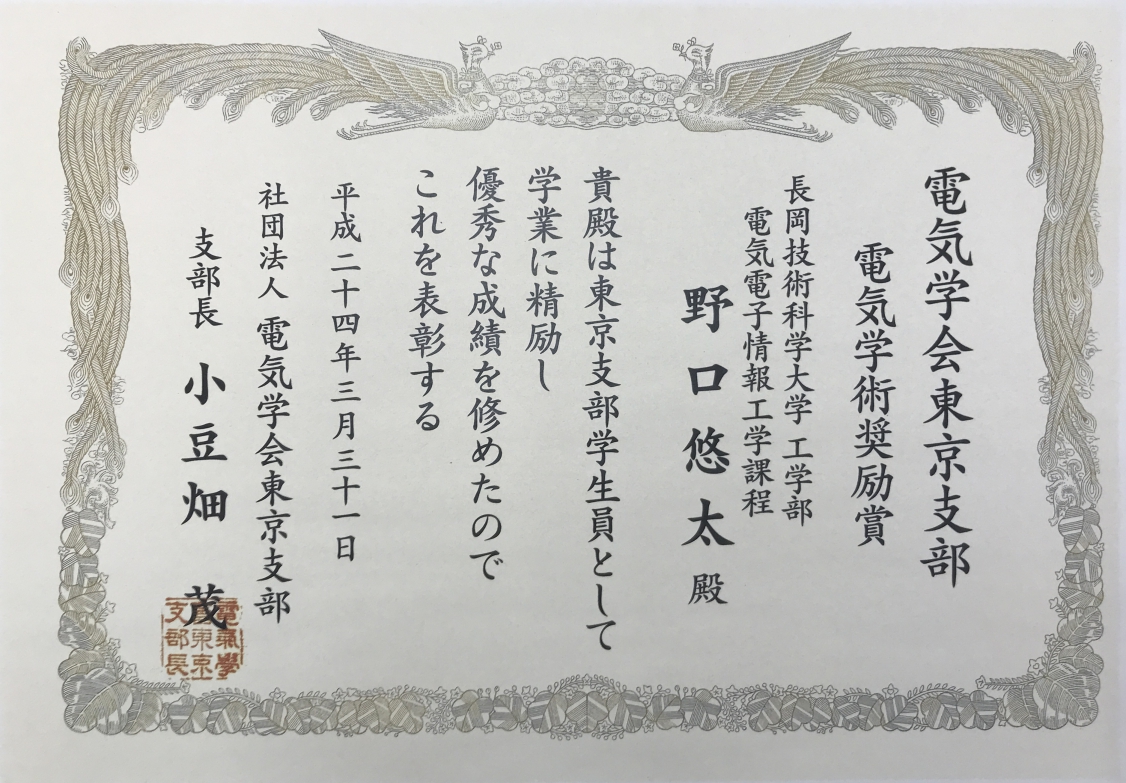 電気学会東京支部
電気学術奨励賞
長岡技術科学大学 工学部
電気電子情報工学課程
野口悠太 殿
貴殿は東京支部学生員として
学業に精励し
優秀な成績を修めたので
これを表彰する
平成二十四年三月三十一日
社団法人 電気学会東京支部
支部長 小豆畑 茂
電氣學
會東京
支部長